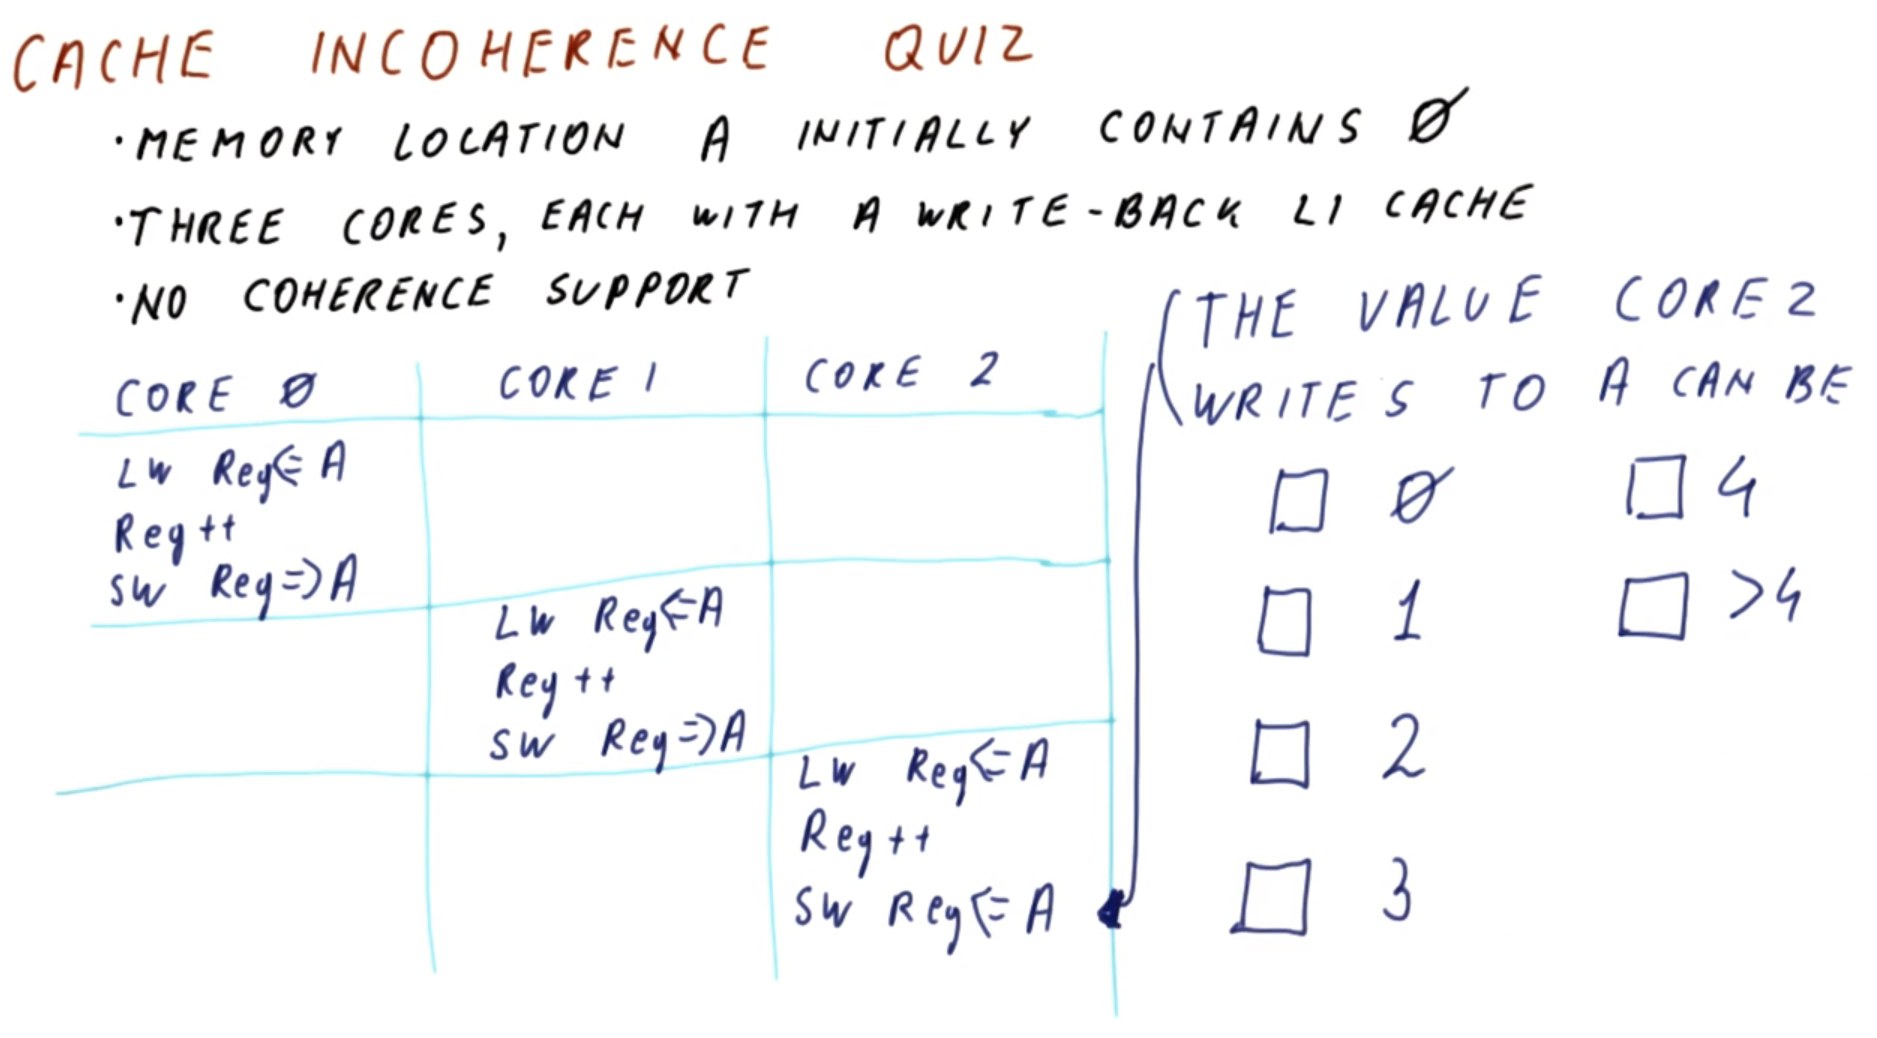 CACHE INCOHERENCE QUIZ
· MEMORY LOCATION A INITIALLY CONTAINS Ø
· THREE CORES, EACH WITH A WRITE-BACK L1 CACHE
· NO COHERENCE SUPPORT
CORE Ø
LW Reg⇐A
Reg++
SW Reg⇒A
CORE 1
LW Reg⇐A
Reg++
SW Reg⇒A
CORE 2
LW Reg⇐A
Reg++
SW Reg⇐A
THE VALUE CORE 2
WRITES TO A CAN BE
Ø
1
2
3
4
>4